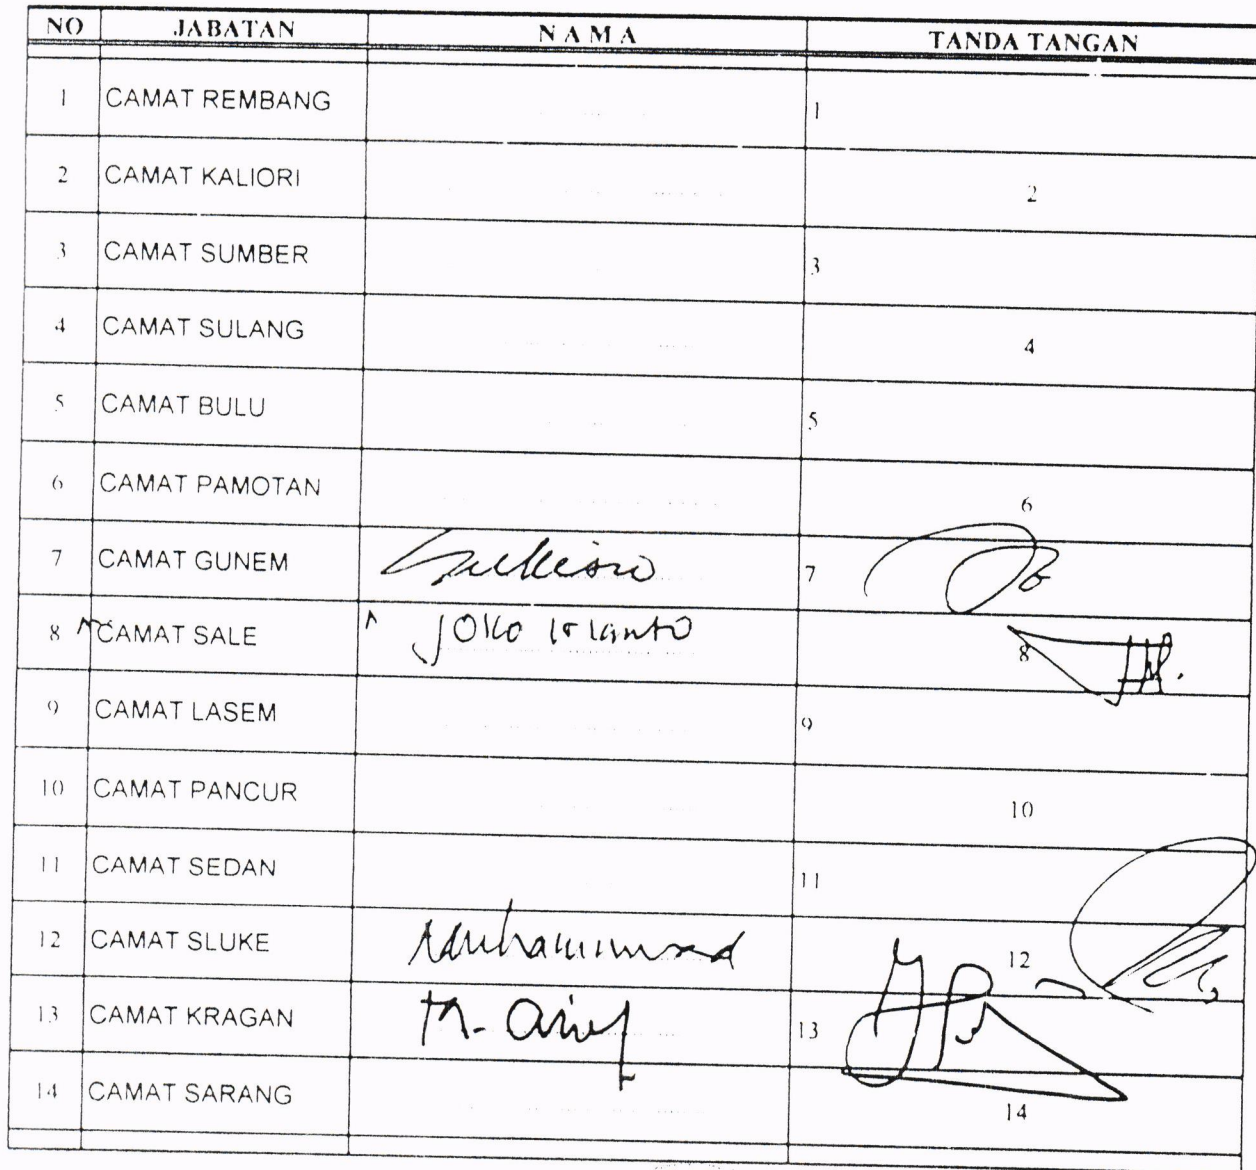 NO JABATAN N A M A TANDA TANGAN
1 CAMAT REMBANG 1
2 CAMAT KALIORI 2
3 CAMAT SUMBER 3
4 CAMAT SULANG 4
5 CAMAT BULU 5
6 CAMAT PAMOTAN 6
7 CAMAT GUNEM 7
8 CAMAT SALE Joko 8
9 CAMAT LASEM 9
10 CAMAT PANCUR 10
11 CAMAT SEDAN 11
12 CAMAT SLUKE Muhammad 12
13 CAMAT KRAGAN M. Arief 13
14 CAMAT SARANG 14